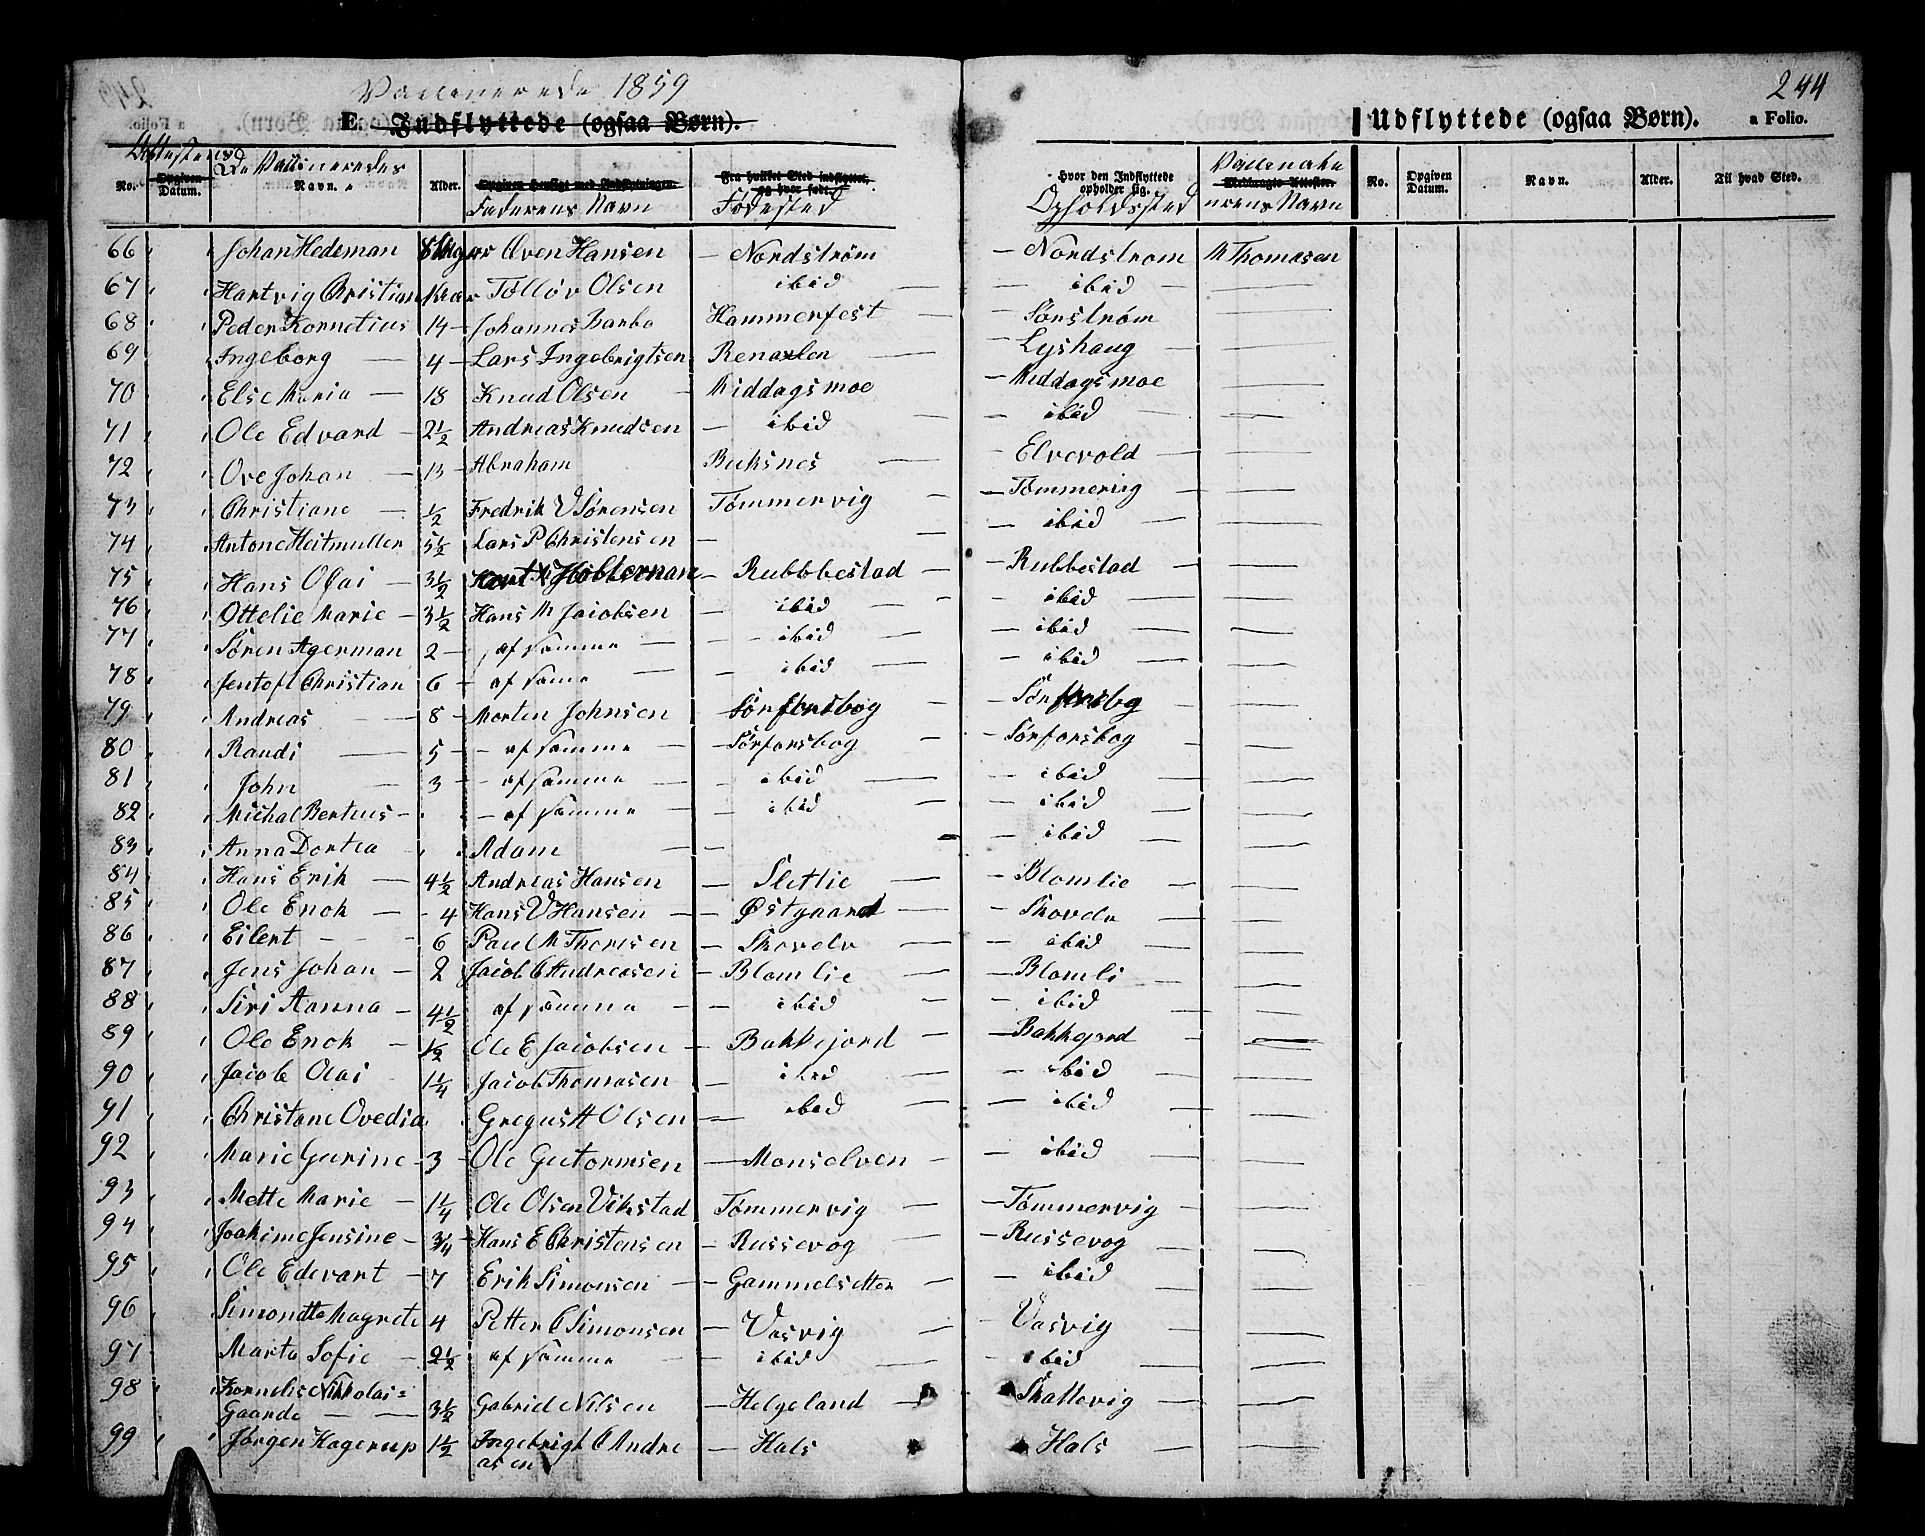 Vaccinerede 1859
244
E. Indflyttede (ogsaa Børn).
Udflyttede (ogsaa Børn).
a Folio.
No. Opgiven Datum. De Vaccineredes Navn. Alder. Faderens Navn Fødested
Hvor den Indflyttede opholder sig. Opholdssted Medbragte Attester. No. Opgiven Datum. Navn. Alder. Til hvad Sted.
66 Johan Hedeman Oven Hansen — Nordstrøm — Nordstrom M Thomasen
67 Hartvig Christian Tollöv Olsen ibid — ibid
68 Peder Kornelius 14 Johannes Barbo Hammerfest — Sørstrøm
69 Ingeborg — 4 Lars Ingebrigtsen Renaelen — Lyshaug
70 Else Maria — 18 Knud Olsen Middagsmoe — Middagsmoe
71 Ole Edvard — 2½ Andreas Knudsen — ibid — ibid
72 Ove Johan — 13 Abraham Buksnes — Elvevold
73 Christiane — ½ Fredrik V Sörensen Tømmervig — Tømmervig
74 Antone Heitmuller 5½ Lars P Christensen — — ibid
75 Hans Olai — 3½ — Rubbbestad — Rubbestad
76 Ottelie Marie — 3½ Hans M Jacobsen — ibid — ibid
77 Søren Agerman 2 — af samme — ibid — ibid
78 Jentoft Christian 6 — af samme — ibid — ibid
79 Andreas — 8 — Morten Johnsen — Sørforsbog — Sørforsbog
80 Randi — 5 — af samme — Sørforsbog — Sørforsbog
81 John — 3 — af samme — ibid — ibid
82 Michal Bertius — — af samme — ibid — ibid
83 Anna Dortea — Adam — — ibid
84 Hans Erik — 4½ Andreas Hansen — Slettlie — Blomlie
85 Ole Enok — 4 Hans V Hansen — Østgaard — Skovelv
86 Eilert — 6 Paul M Thomsen — Skovelv — ibid
87 Jens Johan — 2 Jacob C Andreasen — Blomlie — Blomli
88 Siri Aanna — 4½ af samme — ibid — ibid
89 Ole Enok — ½ Ole E Jacobsen — Bakkejord — Bakkejord
90 Jacob Olai 1¼ Jacob Thomasen — ibid — ibid
91 Christane Ovedia Gregus H Olsen — ibid — ibid
92 Marie Gurine — 3 — Ole Gutormsen — Monselven — ibid
93 Mette Marie — 1¼ Ole Olsen Vikstad Tømmervig — Tømmervig
94 Joakime Jensine — ¾ Hans E Christensen — Russevog — Russevog
95 Ole Edevart — 7 Erik Simonsen — Gammelsetter — ibid
96 Simondte Magrete 4 Petter C Simonsen — Vasvig — Vasvig
97 Marta Sofie — 2½ af samme — ibid — ibid
98 Kornelis Nikkolai=
Gaarde — 3½ Gabriel Nilsen — Helgeland — Skattevig
99 Jørgen Hagerup 1½ Ingebrigt C Andre
asen — Hals — Hals